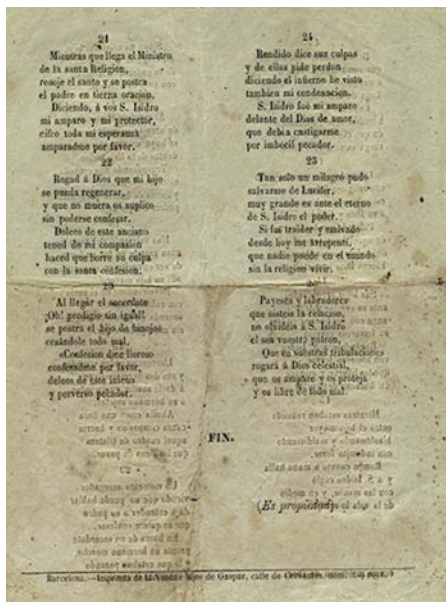 21
Mientras que llega el Ministro
de la santa Religion,
recoje el santo y se postra
el padre en tierna oracion.
Diciendo, á vos S. Isidro
mi amparo y mi protector,
cifro toda mi esperanza
amparadme por favor.
22
Rogad á Dios que mi hijo
se pueda regenerar,
y que no muera os suplico
sin poderse confesar.
Doleos de este anciano
tened de mi compasion
haced que borre su culpa
con la santa confesion.
23
Al llegar el sacerdote
¡Oh! prodigio sin igual!
se postra el hijo de hinojos
cesándole todo mal.
«Confesion dice lloroso
confesadme por favor,
doleos de este inicuo
y perverso pecador.
24
Rendido dice sus culpas
y de ellas pide perdon
diciendo el infierno he visto
tambien mi condenacion.
S. Isidro fué mi amparo
delante del Dios de amor,
que debia castigarme
por imbécil pecador.
25
Tan solo un milagro pudo
salvarme de Lucifer,
muy grande es ante el eterno
de S. Isidro el poder.
Si fuí traidor y malvado
desde hoy me arrepentí,
que nadie puede en el mundo
sin la religion vivir.
Payeses y labradores
que oisteis la relacion,
no olvideis á S. Isidro
el sea vuestro patron,
Que en vuestras tribulaciones
rogará á Dios celestial,
que os ampare y os proteja
y os libre de todo mal.
FIN.
(Es propiedad)
Barcelona.—Imprenta de la Viuda é hijos de Gaspar, calle de Cervantes, núm.